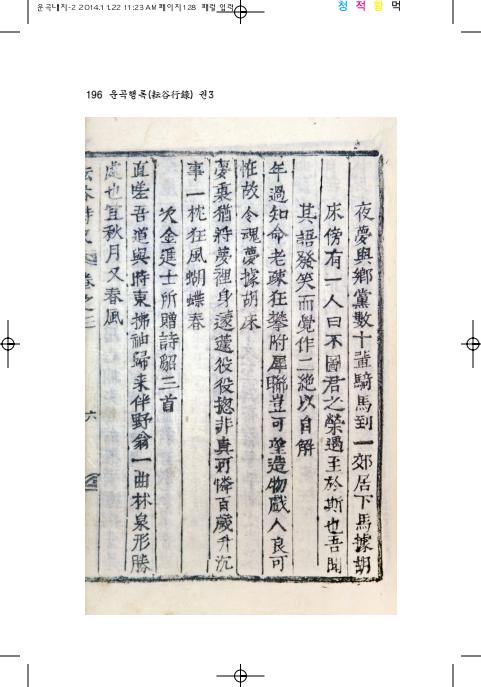 운곡내지-2 2014.11.22 11:23 AM 페이지128 패럴 입력
청 적 황 먹
196 운곡행록(耘谷行錄) 권3
夜夢與鄕黨數十輩騎馬到一郊居下馬據胡
床傍有一人曰不圖君之榮遇至於斯也吾聞
其語發笑而覺作二絶以自解
年過知命老疎狂攀附犀聯豈可望造物戱人良可
恠故令魂夢據胡床
夢裏猶將夢裡身蘧蘧役役摠非眞可憐百歲升沉
事一枕狂風蝴蝶春
次金進士所贈詩韶三首
直嗟吾道與時東拂袖歸来伴野翁一曲林泉形勝
處也宜秋月又春風
六